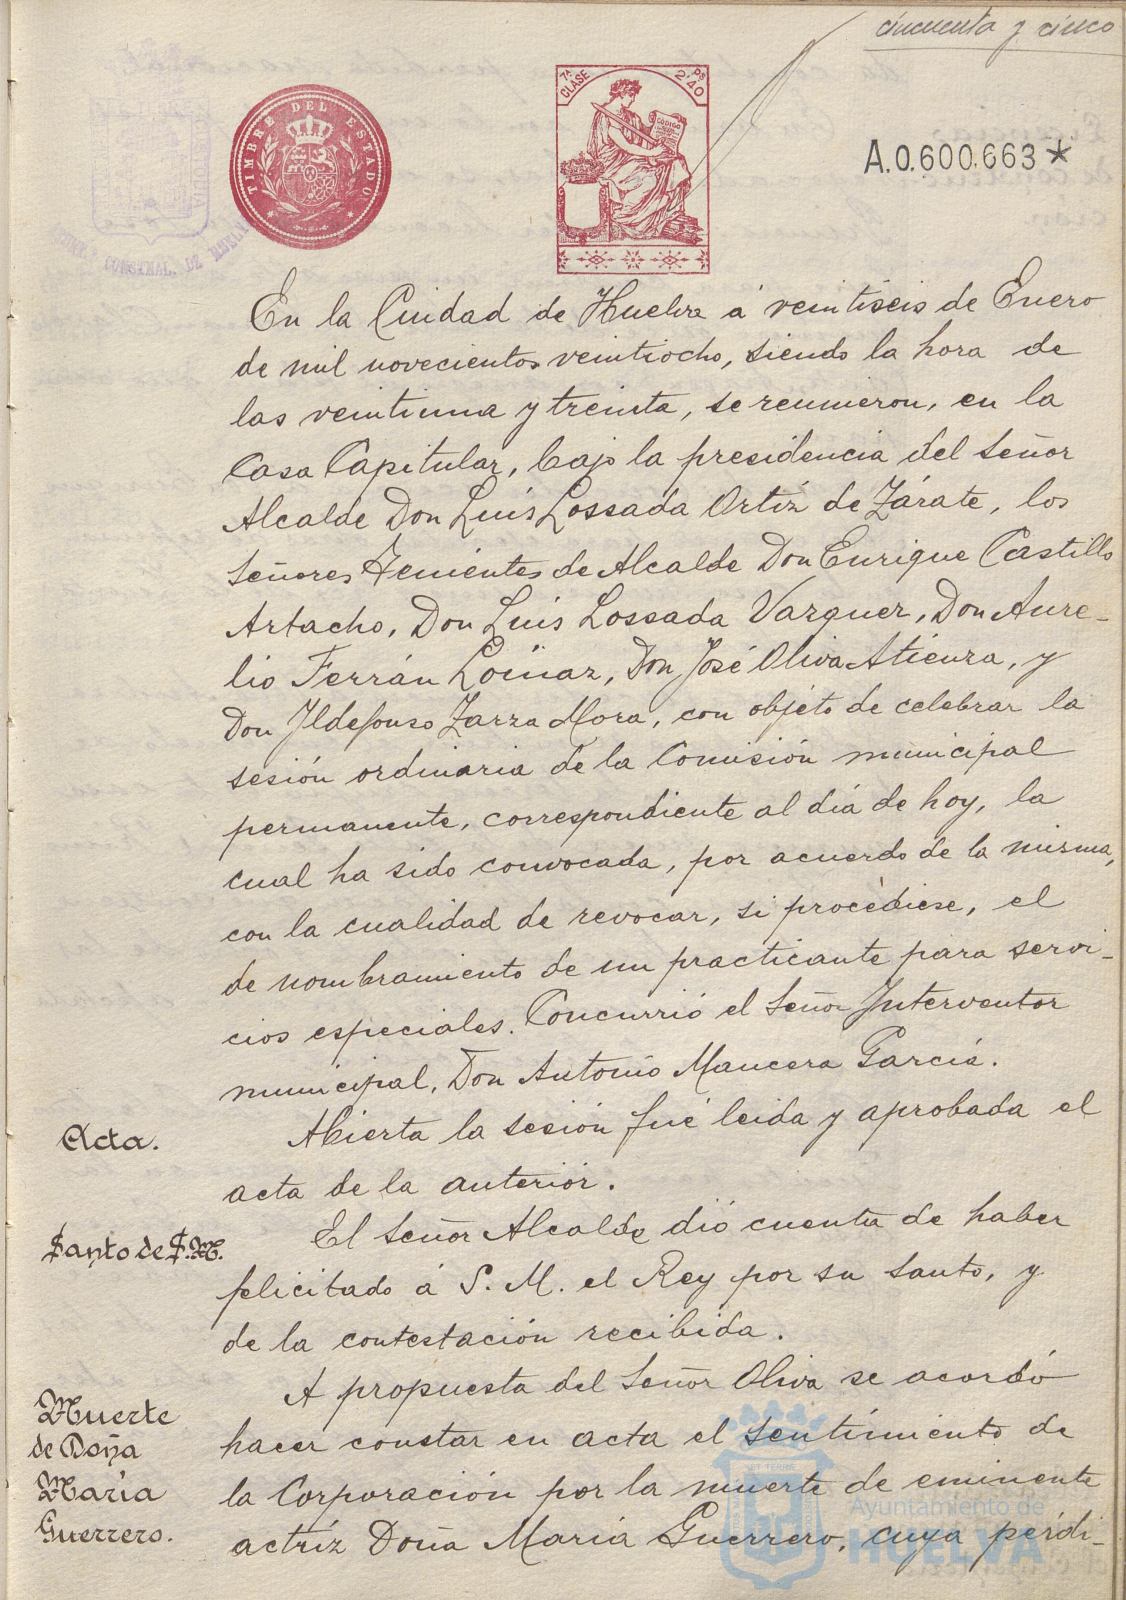 cincuenta y cinco
TIMBRE DEL ESTADO
7ª CLASE
Ps 2'40
CODIGO
A.0.600.663*
CONSTNAL. DE
En la Ciudad de Huelva á veintiseis de Enero
de mil novecientos veintiocho, siendo la hora de
las veintiuna y treinta, se reunieron, en la
Casa Capitular, bajo la presidencia del Señor
Alcalde Don Luis Lossada Ortiz de Zárate, los
Señores Tenientes de Alcalde Don Enrique Castillo
Artacho, Don Luis Lossada Vazquez, Don Aure-
lio Ferrán Loinaz, Don José Oliva Atienza, y
Don Ildefonso Zarza Mora, con objeto de celebrar la
sesión ordinaria de la Comisión municipal
permanente, correspondiente al día de hoy, la
cual ha sido convocada, por acuerdo de la misma,
con la cualidad de revocar, si procediese, el
de nombramiento de un practicante para servi-
cios especiales. Concurrió el Señor Interventor
municipal, Don Antonio Mancera García.
Acta.
Abierta la sesión fué leida y aprobada el
acta de la anterior.
Santo de S.M.
El Señor Alcalde dió cuenta de haber
felicitado á S. M. el Rey por su Santo, y
de la contestación recibida.
Muerte
de Doña
María
Guerrero.
A propuesta del Señor Oliva se acordó
hacer constar en acta el sentimiento de
la Corporación por la muerte de eminente
actríz Doña María Guerrero, cuya perdi-
Ayuntamiento de
HUELVA